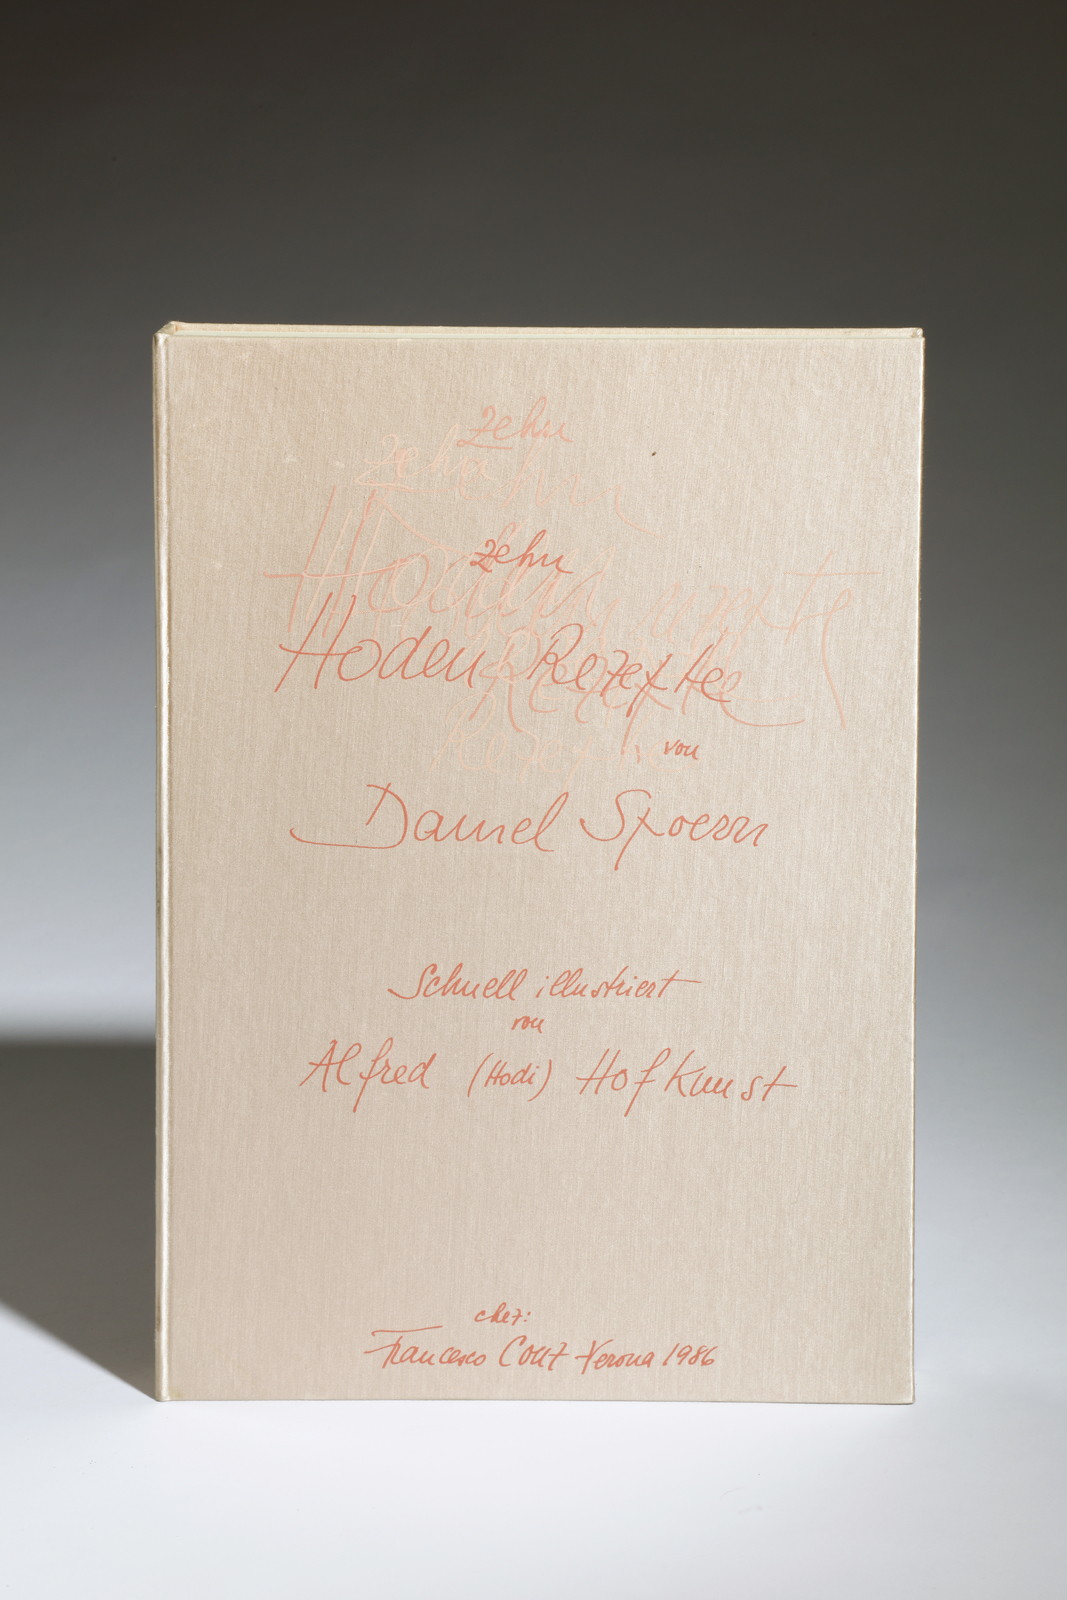 zehn
zehn
zehn
Hoden Rezepte
Rezepte
von
Daniel Spoerri
Schnell illustriert
von
Alfred (Hodi) Hofkunst
chez:
Francesco Conz Verona 1986